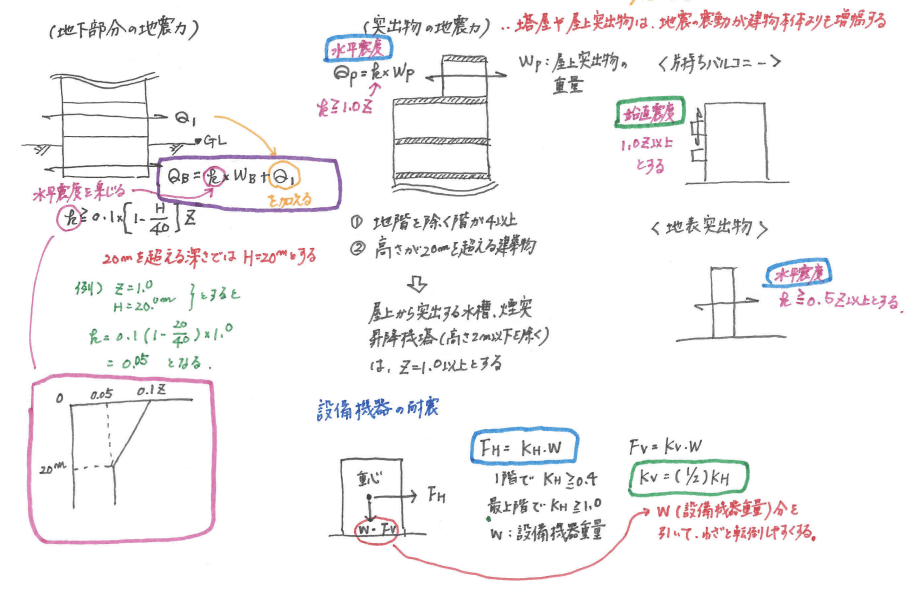 (地下部分の地震力)
Q1
GL
QB = k × WB + Q1
を加える
水平震度を乗じる
k ≧ 0.1×[1 - H/40] Z
20mを超える深さでは H=20mとする
例) Z=1.0
H=20.0m
}とすると
k = 0.1 (1 - 20/40) × 1.0
= 0.05 となる.
0 0.05 0.1Z
20m
(突出物の地震力)
‥塔屋や屋上突出物は、地震の震動が建物本体よりも増幅する
水平震度
Qp = k × Wp
k ≧ 1.0Z
Wp : 屋上突出物の
重量
① 地階を除く階が4以上
② 高さが20mを超える建築物
⇩
屋上から突出する水槽、煙突
昇降機塔(高さ2m以下を除く)
は、Z=1.0以上とする
<片持ちバルコニー>
鉛直震度
1.0Z以上
とする
<地表突出物>
水平震度
k ≧ 0.5Z以上とする.
設備機器の耐震
重心
FH
W - Fv
FH = KH・W
1階で KH ≧ 0.4
最上階で KH ≧ 1.0
W : 設備機器重量
Fv = Kv・W
Kv = (1/2) KH
→ W (設備機器重量) 分を
引いて、わざと転倒しやすくる。